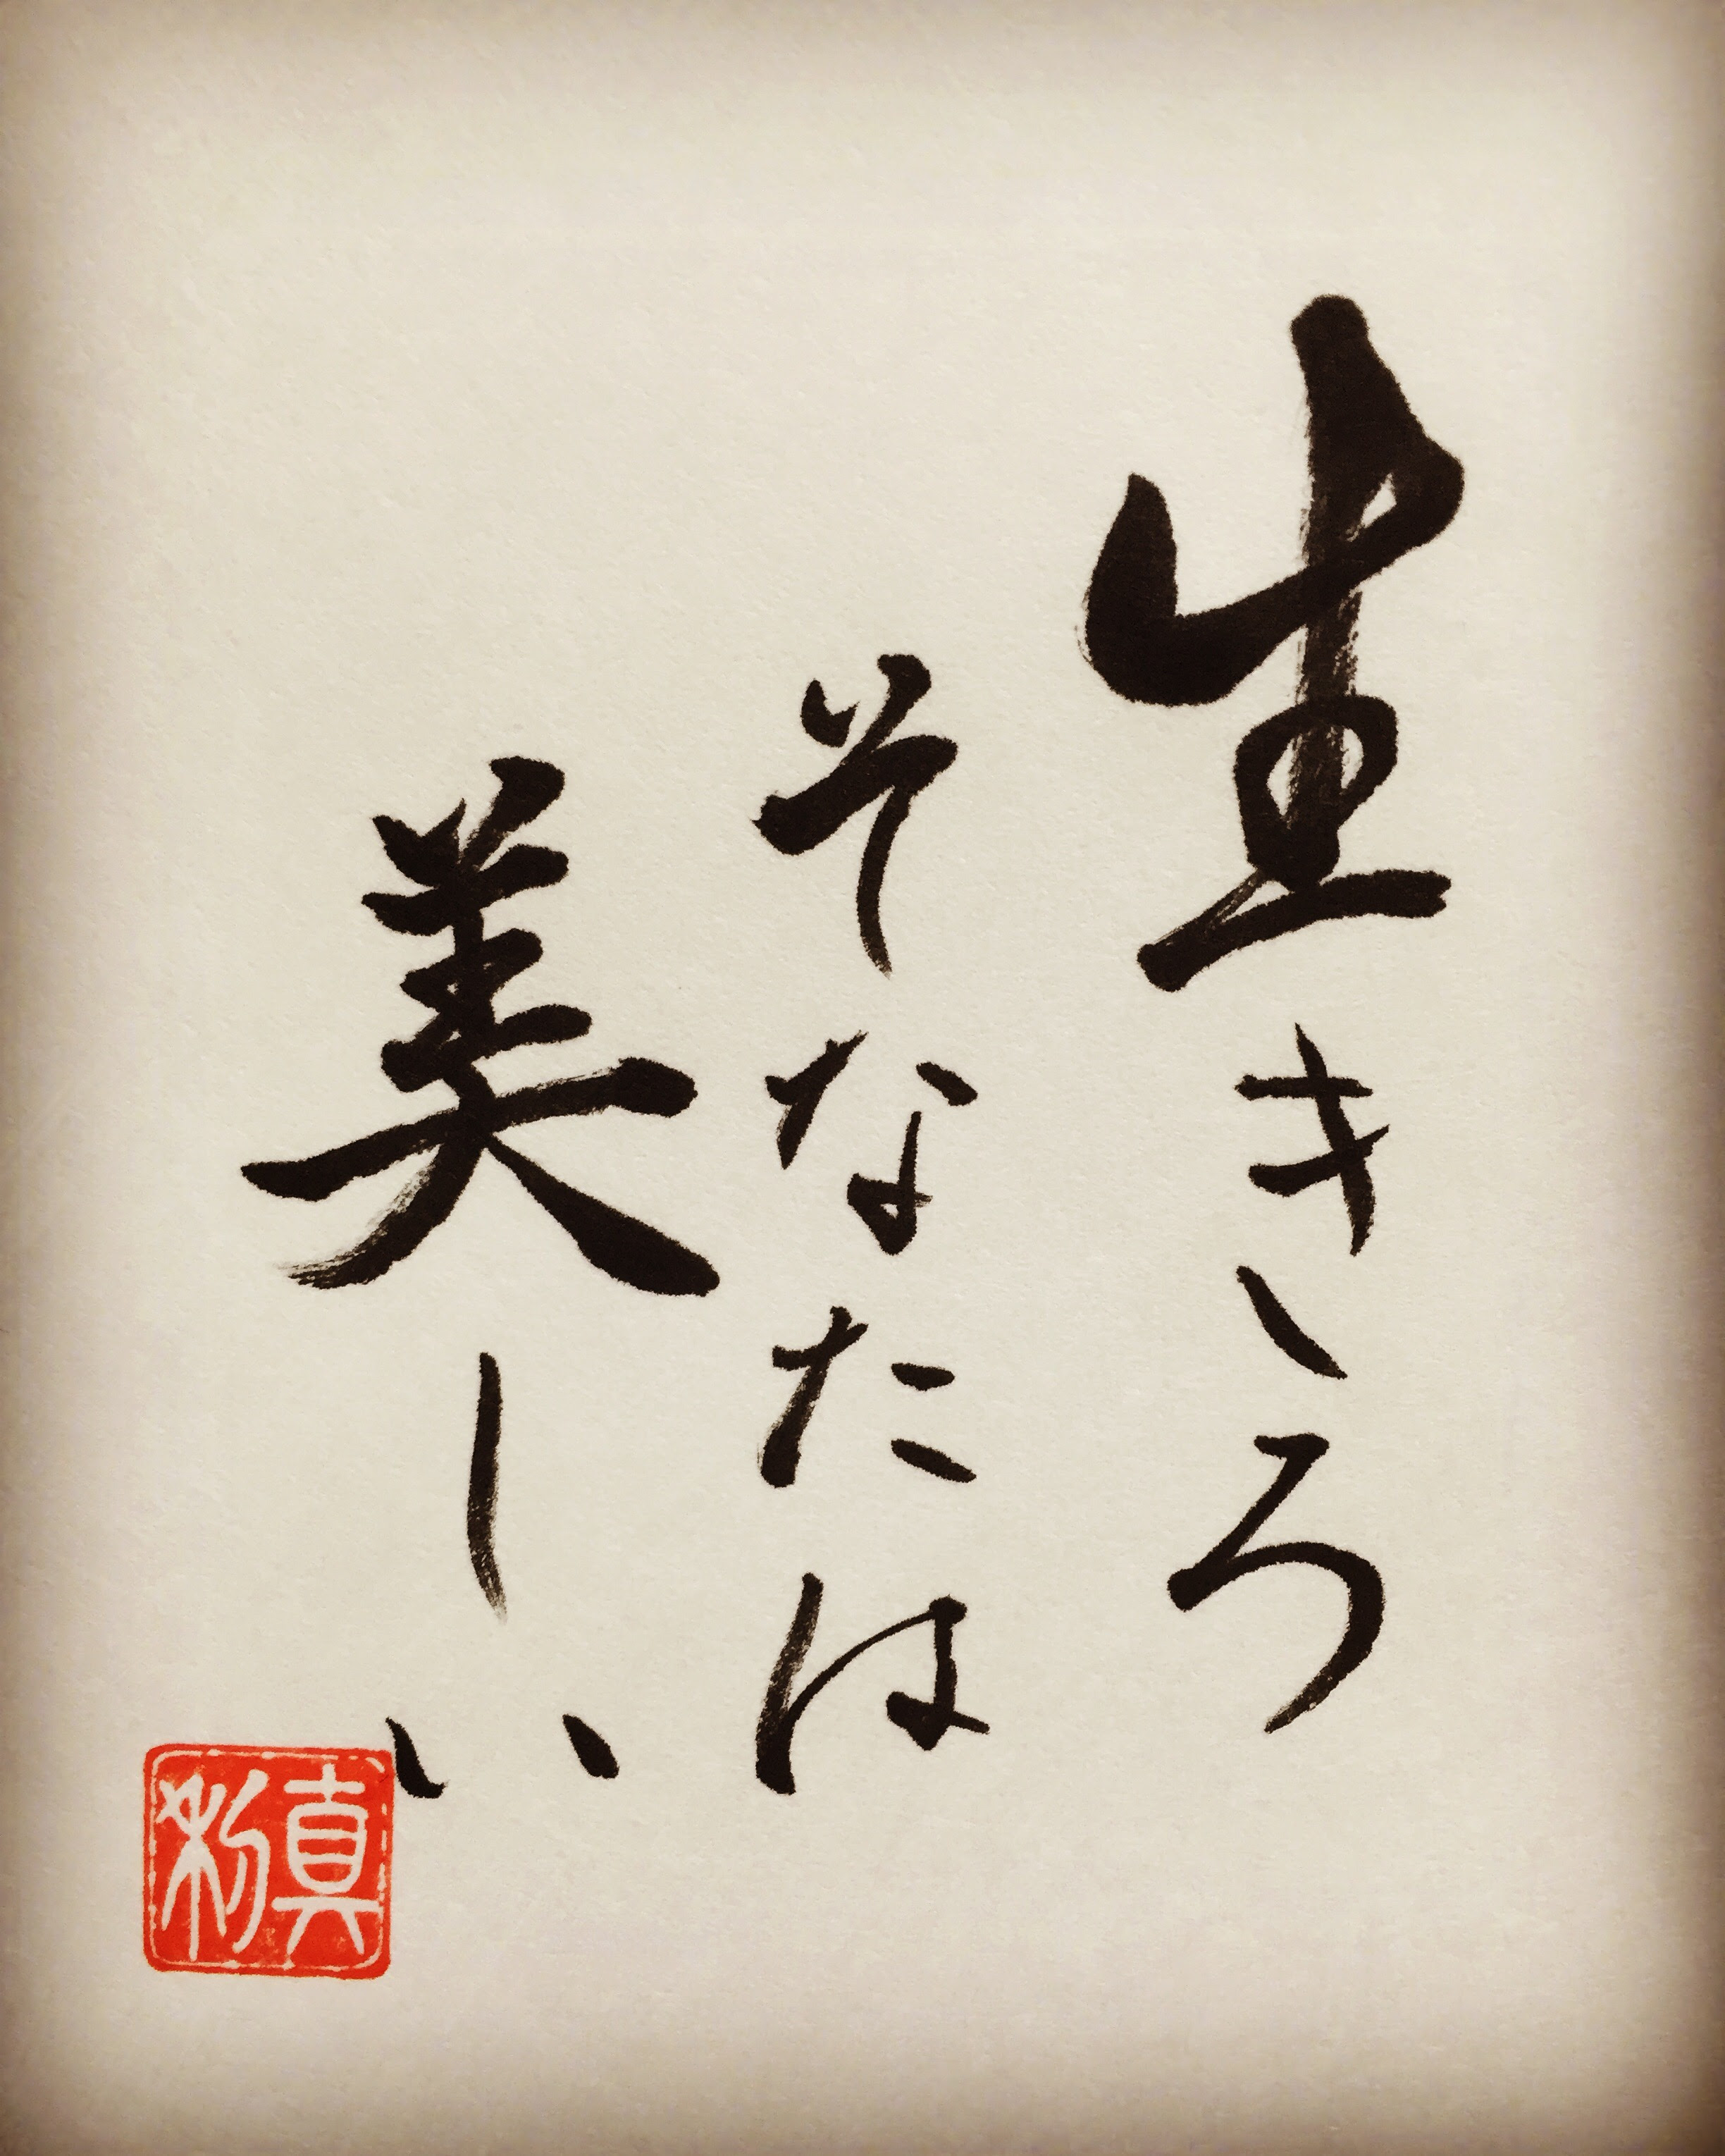 生きろ
そなたは
美しい
真利